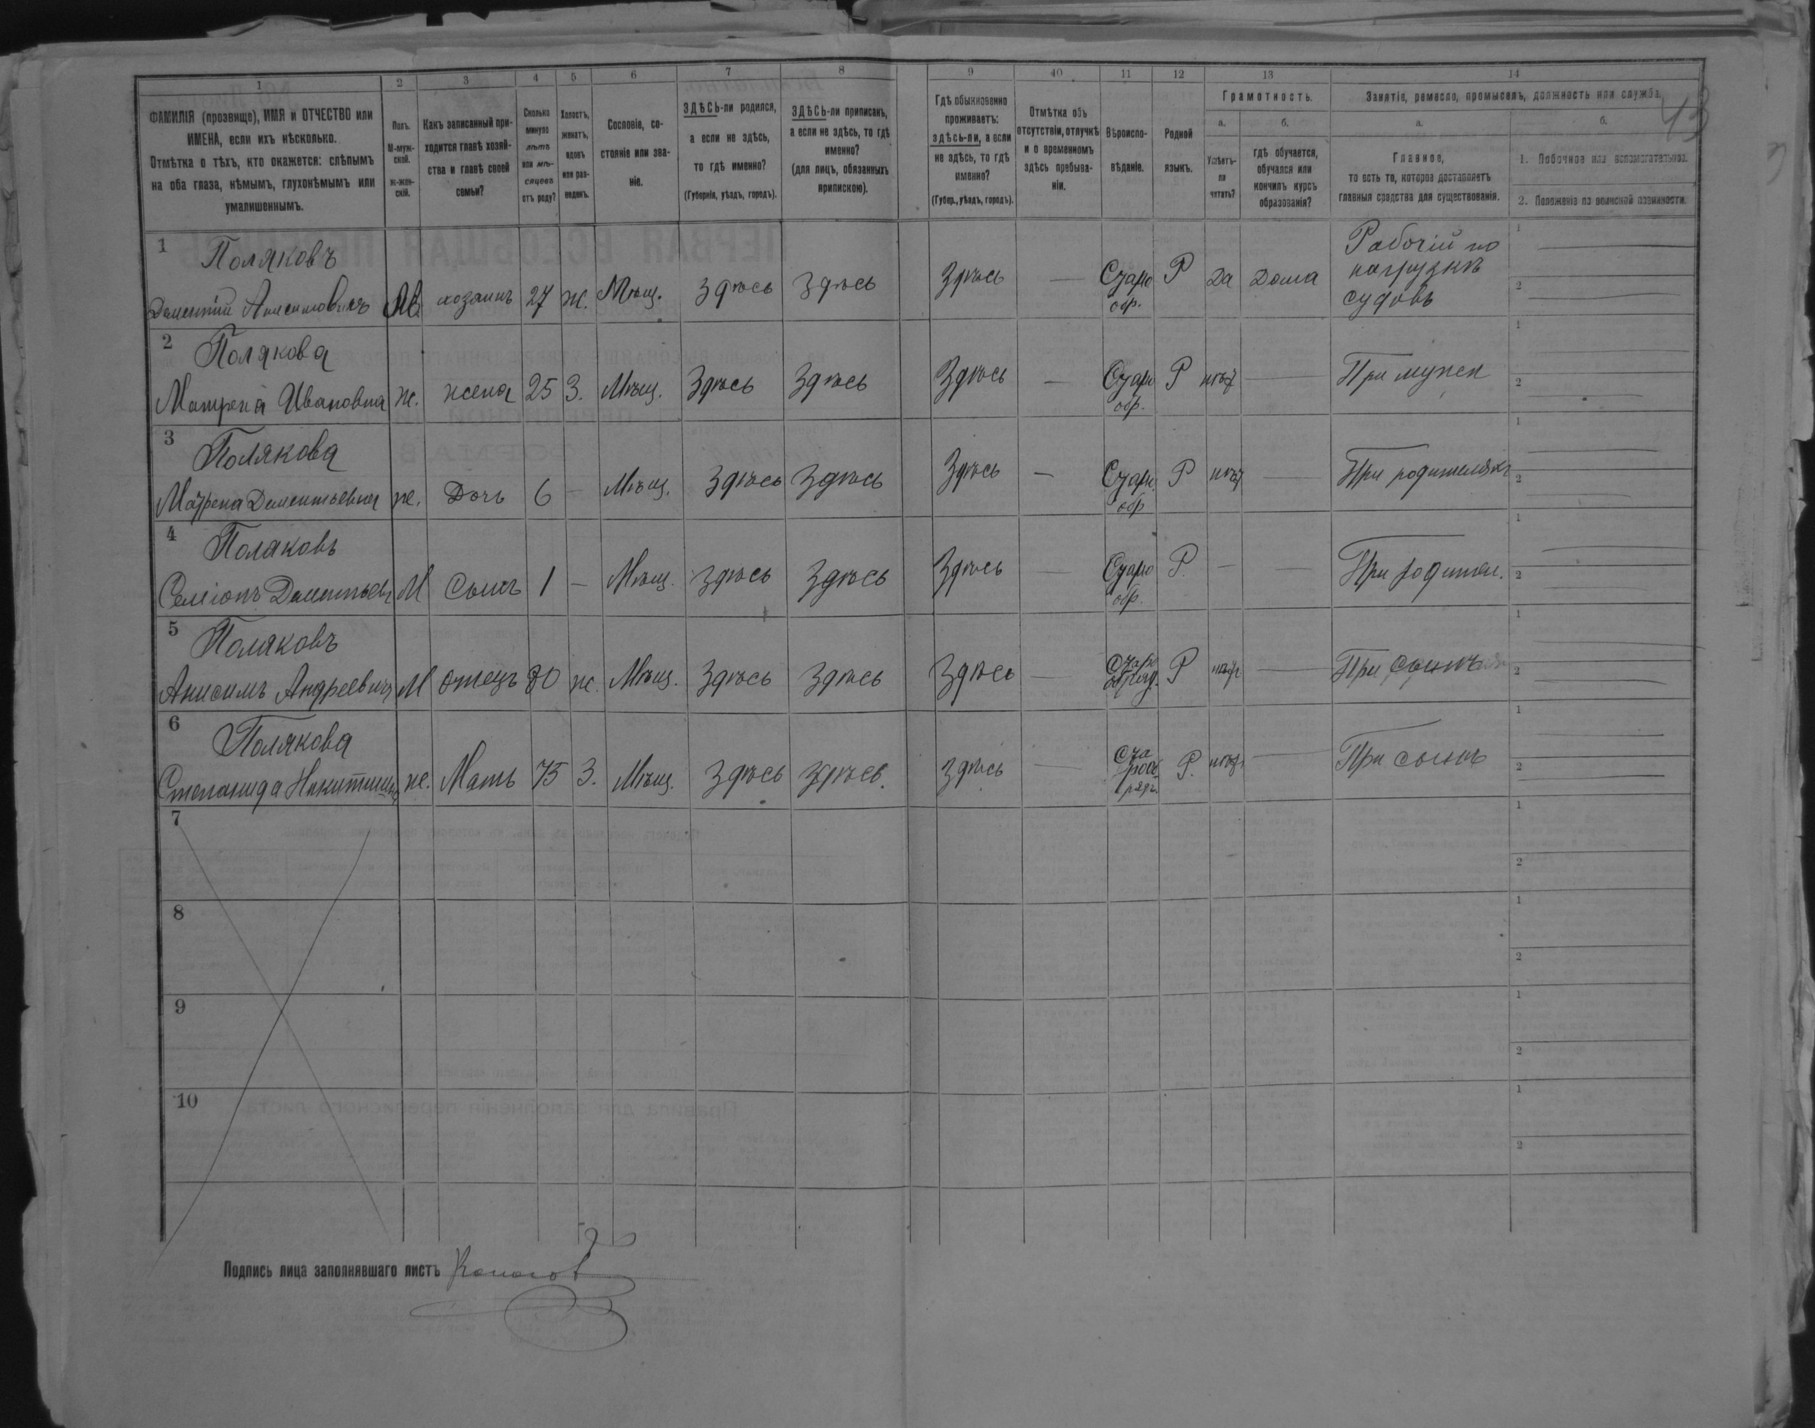 1 2 3 4 5 6 7 8 9 10 11 12 13 14
43
ФАМИЛІЯ (прозвище), ИМЯ и ОТЧЕСТВО или
ИМЕНА, если ихъ нѣсколько.
Отмѣтка о тѣхъ, кто окажется: слѣпымъ
на оба глаза, нѣмымъ, глухонѣмымъ или
умалишеннымъ.
Полъ.
М-муж-
ской.
ж-жен-
скій.
Какъ записанный при-
ходится главѣ хозяй-
ства и главѣ своей
семьи?
Сколько
минуло
лѣтъ
или мѣ-
сяцевъ
отъ роду?
Холостъ,
женатъ,
вдовъ
или раз-
веденъ.
Сословіе, со-
стояніе или зва-
ніе.
ЗДѢСЬ-ли родился,
а если не здѣсь,
то гдѣ именно?
(Губернія, уѣздъ, городъ).
ЗДѢСЬ-ли приписанъ,
а если не здѣсь, то гдѣ
именно?
(для лицъ, обязанныхъ
припискою).
Гдѣ обыкновенно
проживаетъ:
здѣсь-ли, а если
не здѣсь, то гдѣ
именно?
(Губер., уѣздъ, городъ).
Отмѣтка объ
отсутствіи, отлучкѣ
и о временномъ
здѣсь пребыва-
ніи.
Вѣроиспо-
вѣданіе.
Родной
языкъ.
Грамотность.
а.
Умѣетъ-
ли
читать?
б.
гдѣ обучается,
обучался или
кончилъ курсъ
образованія?
Занятіе, ремесло, промыселъ, должность или служба.
а.
Главное,
то есть то, которое доставляетъ
главныя средства для существованія.
б.
1. Побочное или вспомогательное.
2. Положеніе по воинской повинности.
1 Поляковъ
Дементій Анисимовичъ М хозяинъ 27 ж. Мѣщ. Здѣсь Здѣсь Здѣсь — Старо обр. Р да Дома Рабочій по нагрузкѣ судовъ 1 2
2 Полякова
Матрена Ивановна ж. жена 25 З. Мѣщ. Здѣсь Здѣсь Здѣсь — Старо обр. Р нѣтъ — При мужѣ 1 2
3 Полякова
Матрена Дементьевна ж. Дочь 6 — Мѣщ. Здѣсь Здѣсь Здѣсь — Старо обр Р нѣтъ — При родителяхъ 1 2
4 Поляковъ
Семіонъ Дементьев М Сынъ 1 — Мѣщ. Здѣсь Здѣсь Здѣсь — Старо обр. Р. — — При родител. 1 2
5 Поляковъ
Анисимъ Андреевичъ М отецъ 80 ж. Мѣщ. Здѣсь Здѣсь Здѣсь — Старо обряд. Р нѣтъ — При сынѣ 1 2
6 Полякова
Степанида Никитишна ж. Мать 75 З. Мѣщ. Здѣсь Здѣсь. Здѣсь — Ста рооб ряд. Р. нѣтъ — При сынѣ 1 2
7 1 2
8 1 2
9 1 2
10 1 2
Подпись лица заполнявшаго листъ